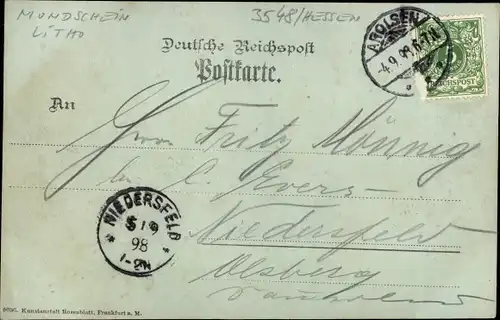 MONDSCHEIN
LITHO
3548/HESSEN
Deutsche Reichspost
Postkarte.
AROLSEN
4.9.
REICHSPOST
An
Herrn Fritz Mönnig
bei C. Evers
Niedersfeld
Olsberg
NIEDERSFELD
5/9
98
1-2N
Kunstanstalt Rosenblatt, Frankfurt a. M.